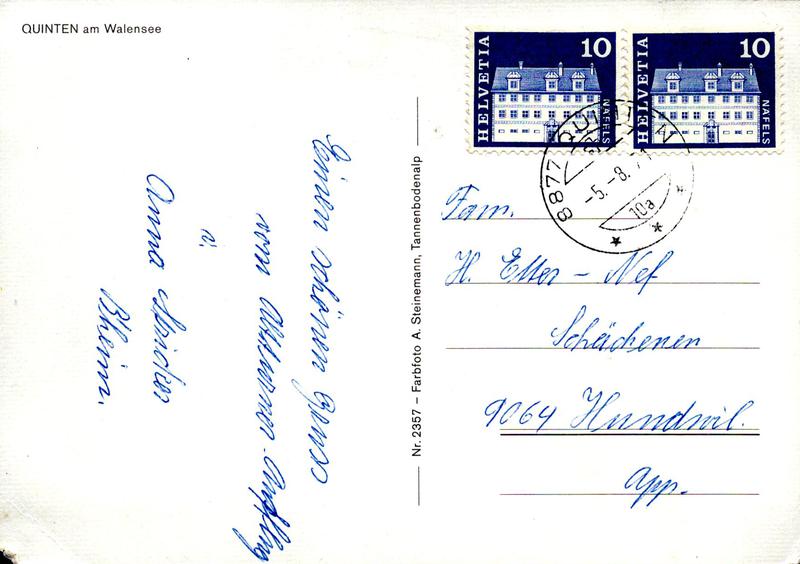 QUINTEN am Walensee
HELVETIA 10 NÄFELS
HELVETIA 10 NÄFELS
8877 QUINTEN
-5.-8.71
10a
Einen schönen Gruss
vom Altersausflug
u.
Anna
Rhein.
Nr. 2357 – Farbfoto A. Steinemann, Tannenbodenalp
Fam.
H. Etter - Nef
Schächenen
9064 Hundwil.
App.